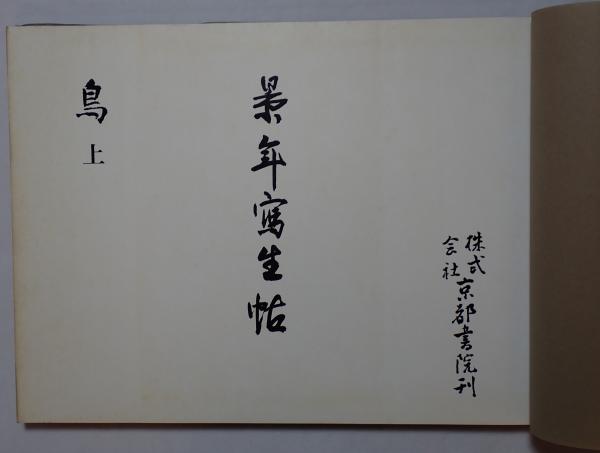 株式会社京都書院刊
景年寫生帖
鳥上